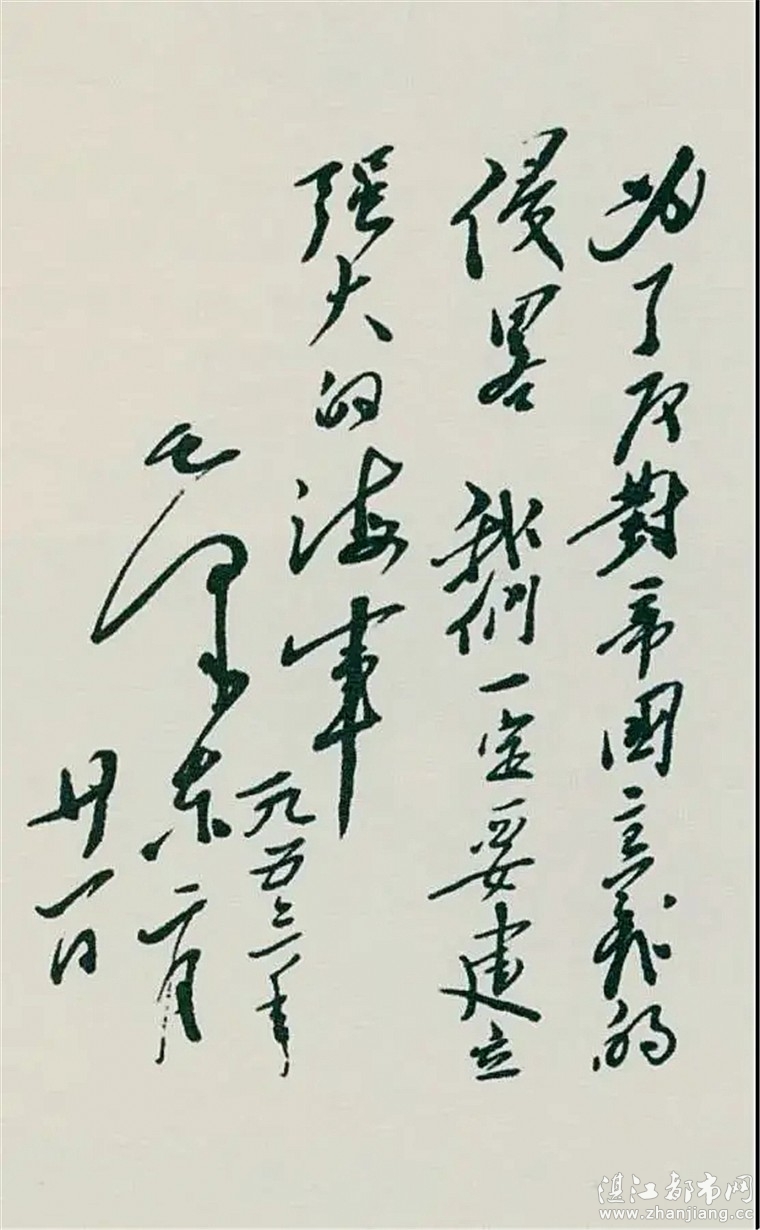 为了反對帝国主義的
侵畧 我們一定要建立
强大的海軍
毛泽东
一九五三年
二月
廿一日
湛江都市网
www.zhanjiang.cc